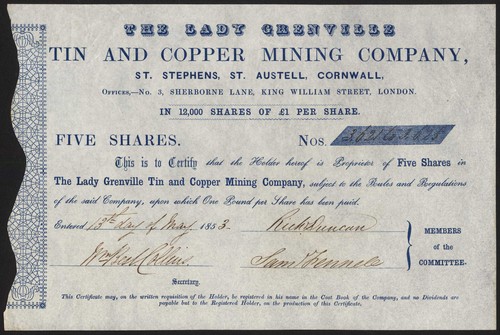 THE LADY GRENVILLE
TIN AND COPPER MINING COMPANY,
ST. STEPHENS, ST. AUSTELL, CORNWALL,
OFFICES,—No. 3, SHERBORNE LANE, KING WILLIAM STREET, LONDON.
IN 12,000 SHARES OF £1 PER SHARE.
FIVE SHARES. Nos.
This is to Certify that the Holder hereof is Proprietor of Five Shares in
The Lady Grenville Tin and Copper Mining Company, subject to the Rules and Regulations
of the said Company, upon which One Pound per Share has been paid.
Entered 13th day of May 1853. Duncan
MEMBERS
OF THE
COMMITTEE.
Collins
Secretary.
This Certificate may, on the written requisition of the Holder, be registered in his name in the Cost Book of the Company, and no Dividends are
payable but to the Registered Holder, on the production of this Certificate.